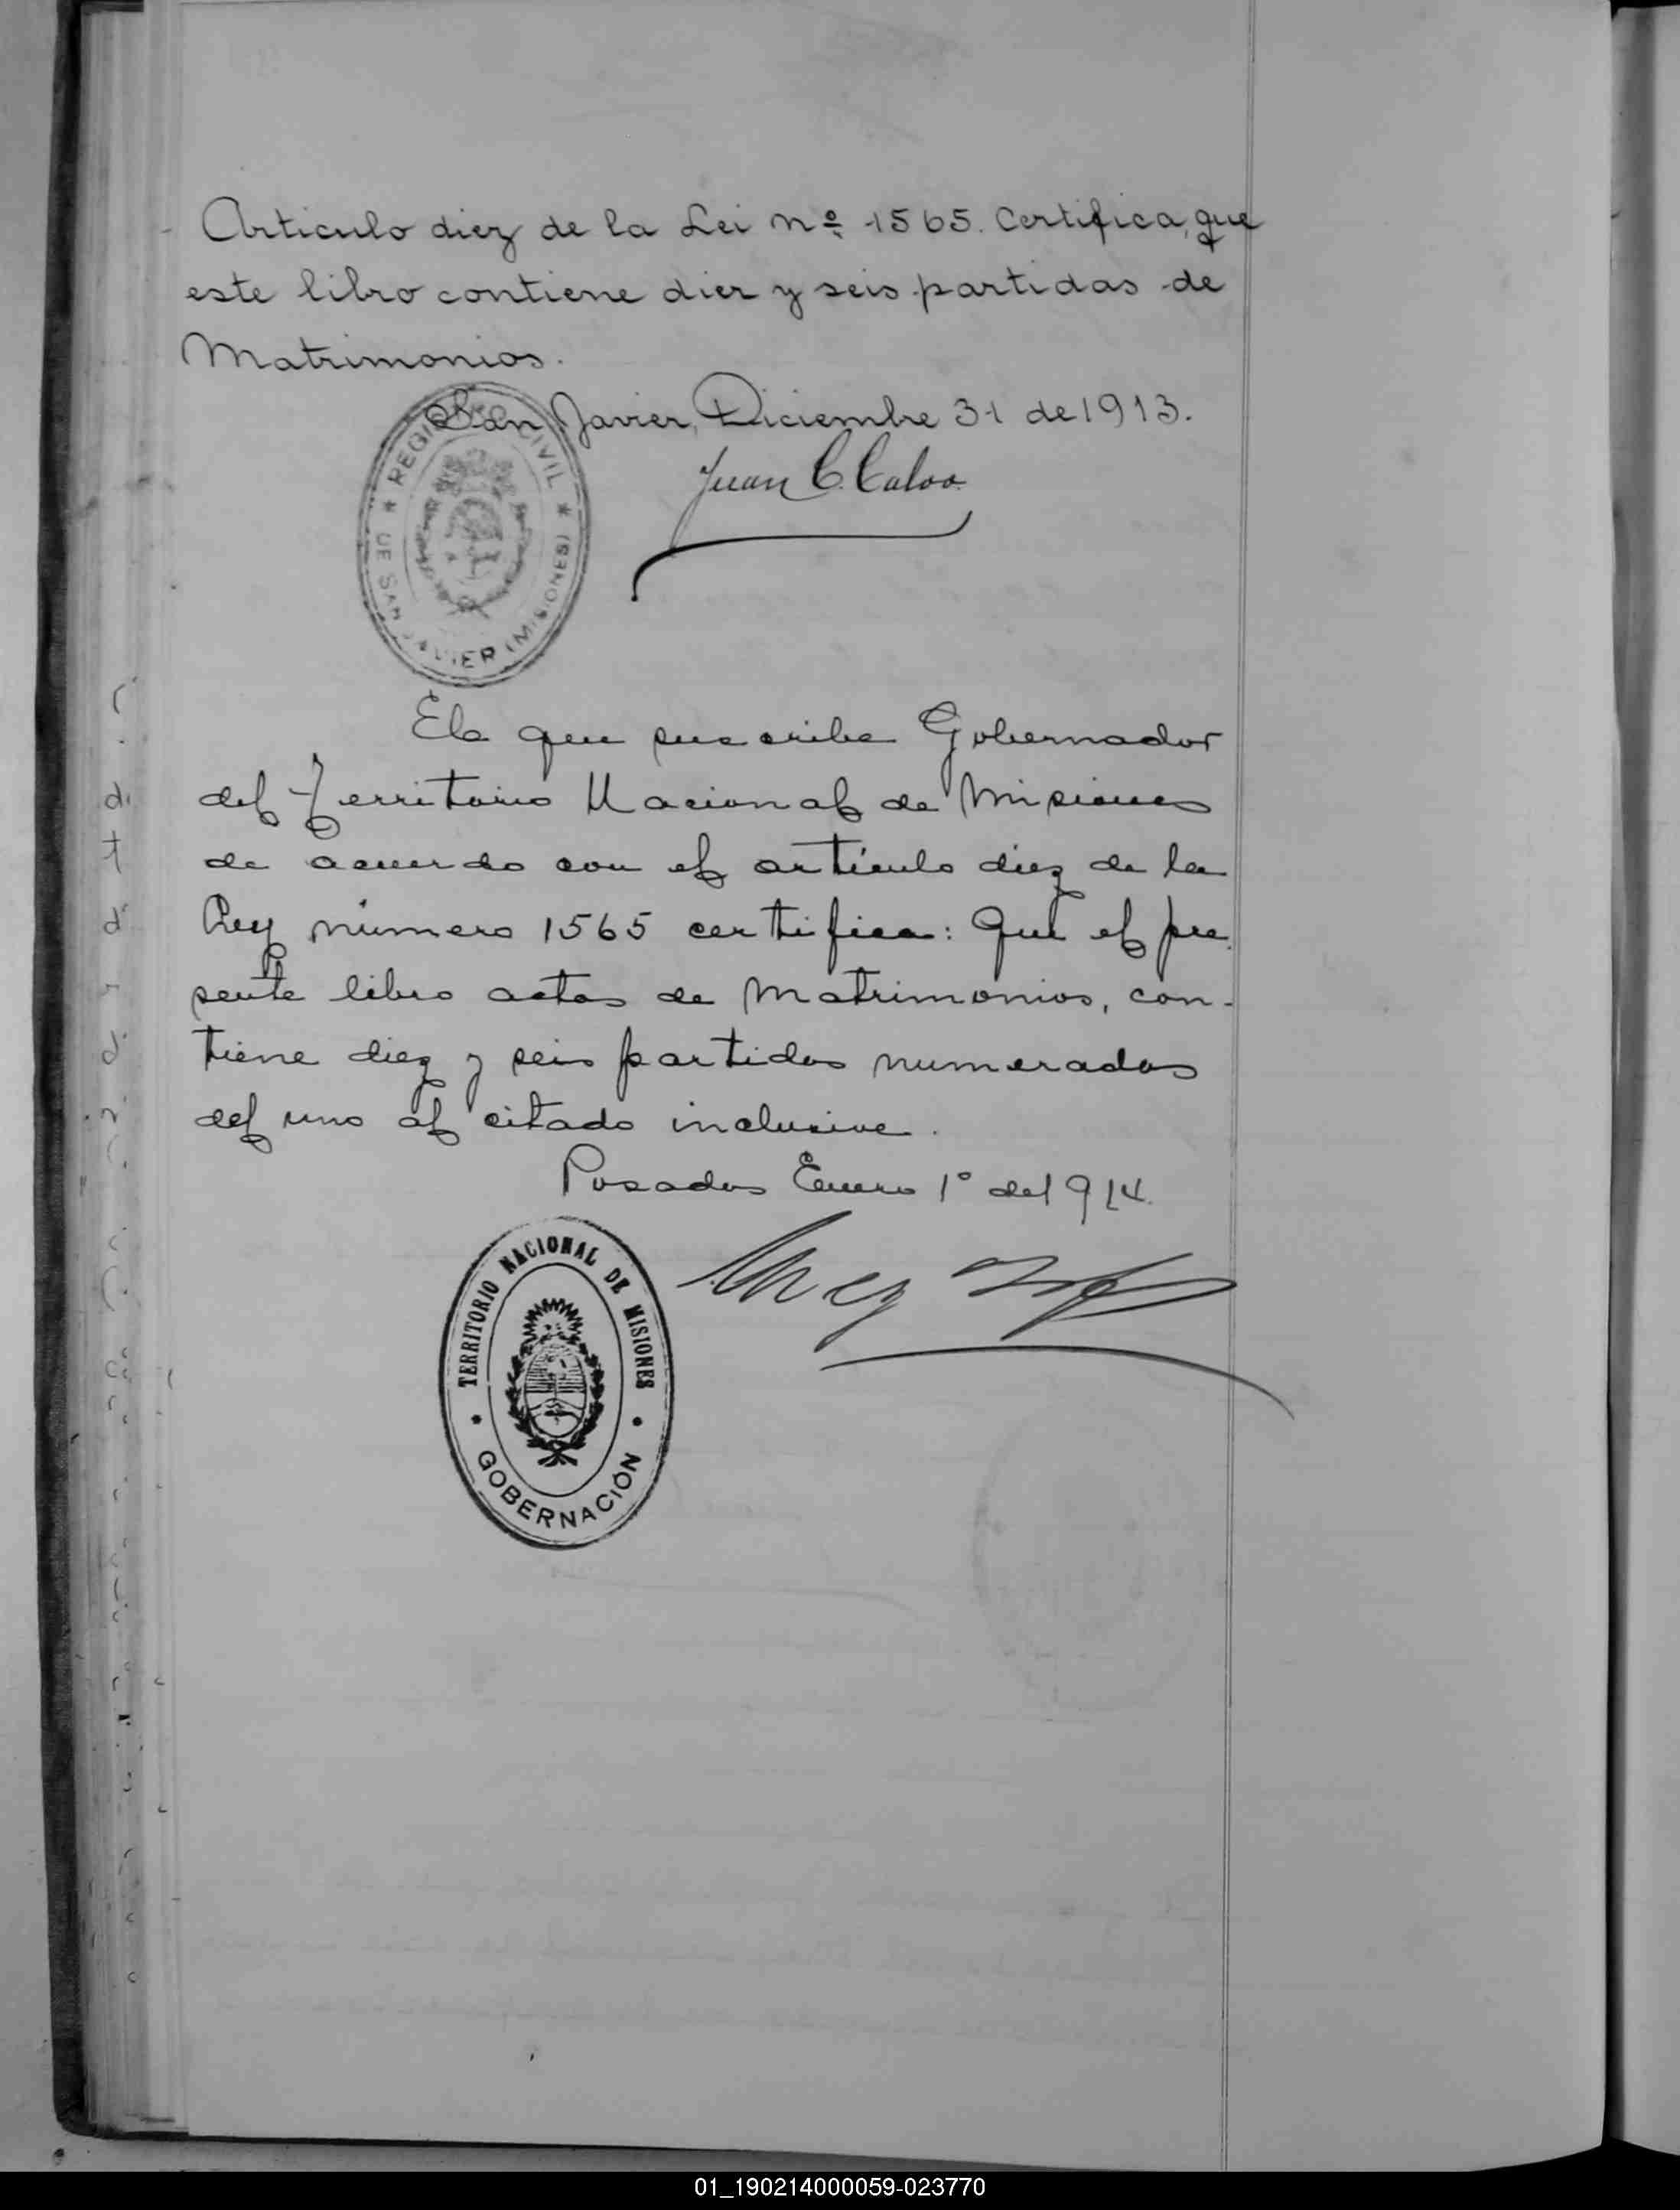 Articulo diez de la Lei nº 1565. Certifica, que
este libro contiene diez y seis partidas de
Matrimonios.
San Javier, Diciembre 31 de 1913.
Juan C. Calvo
REGISTRO CIVIL
DE SAN JAVIER (MISIONES)
El que suscribe Gobernador
del Territorio Nacional de Misiones
de acuerdo con el artículo diez de la
Ley número 1565 certifica: Que el pre
sente libro actas de Matrimonios, con-
tiene diez y seis partidas numeradas
del uno al citado inclusive.
Posadas Enero 1º de 1914.
TERRITORIO NACIONAL DE MISIONES
GOBERNACIÓN
01_190214000059-023770